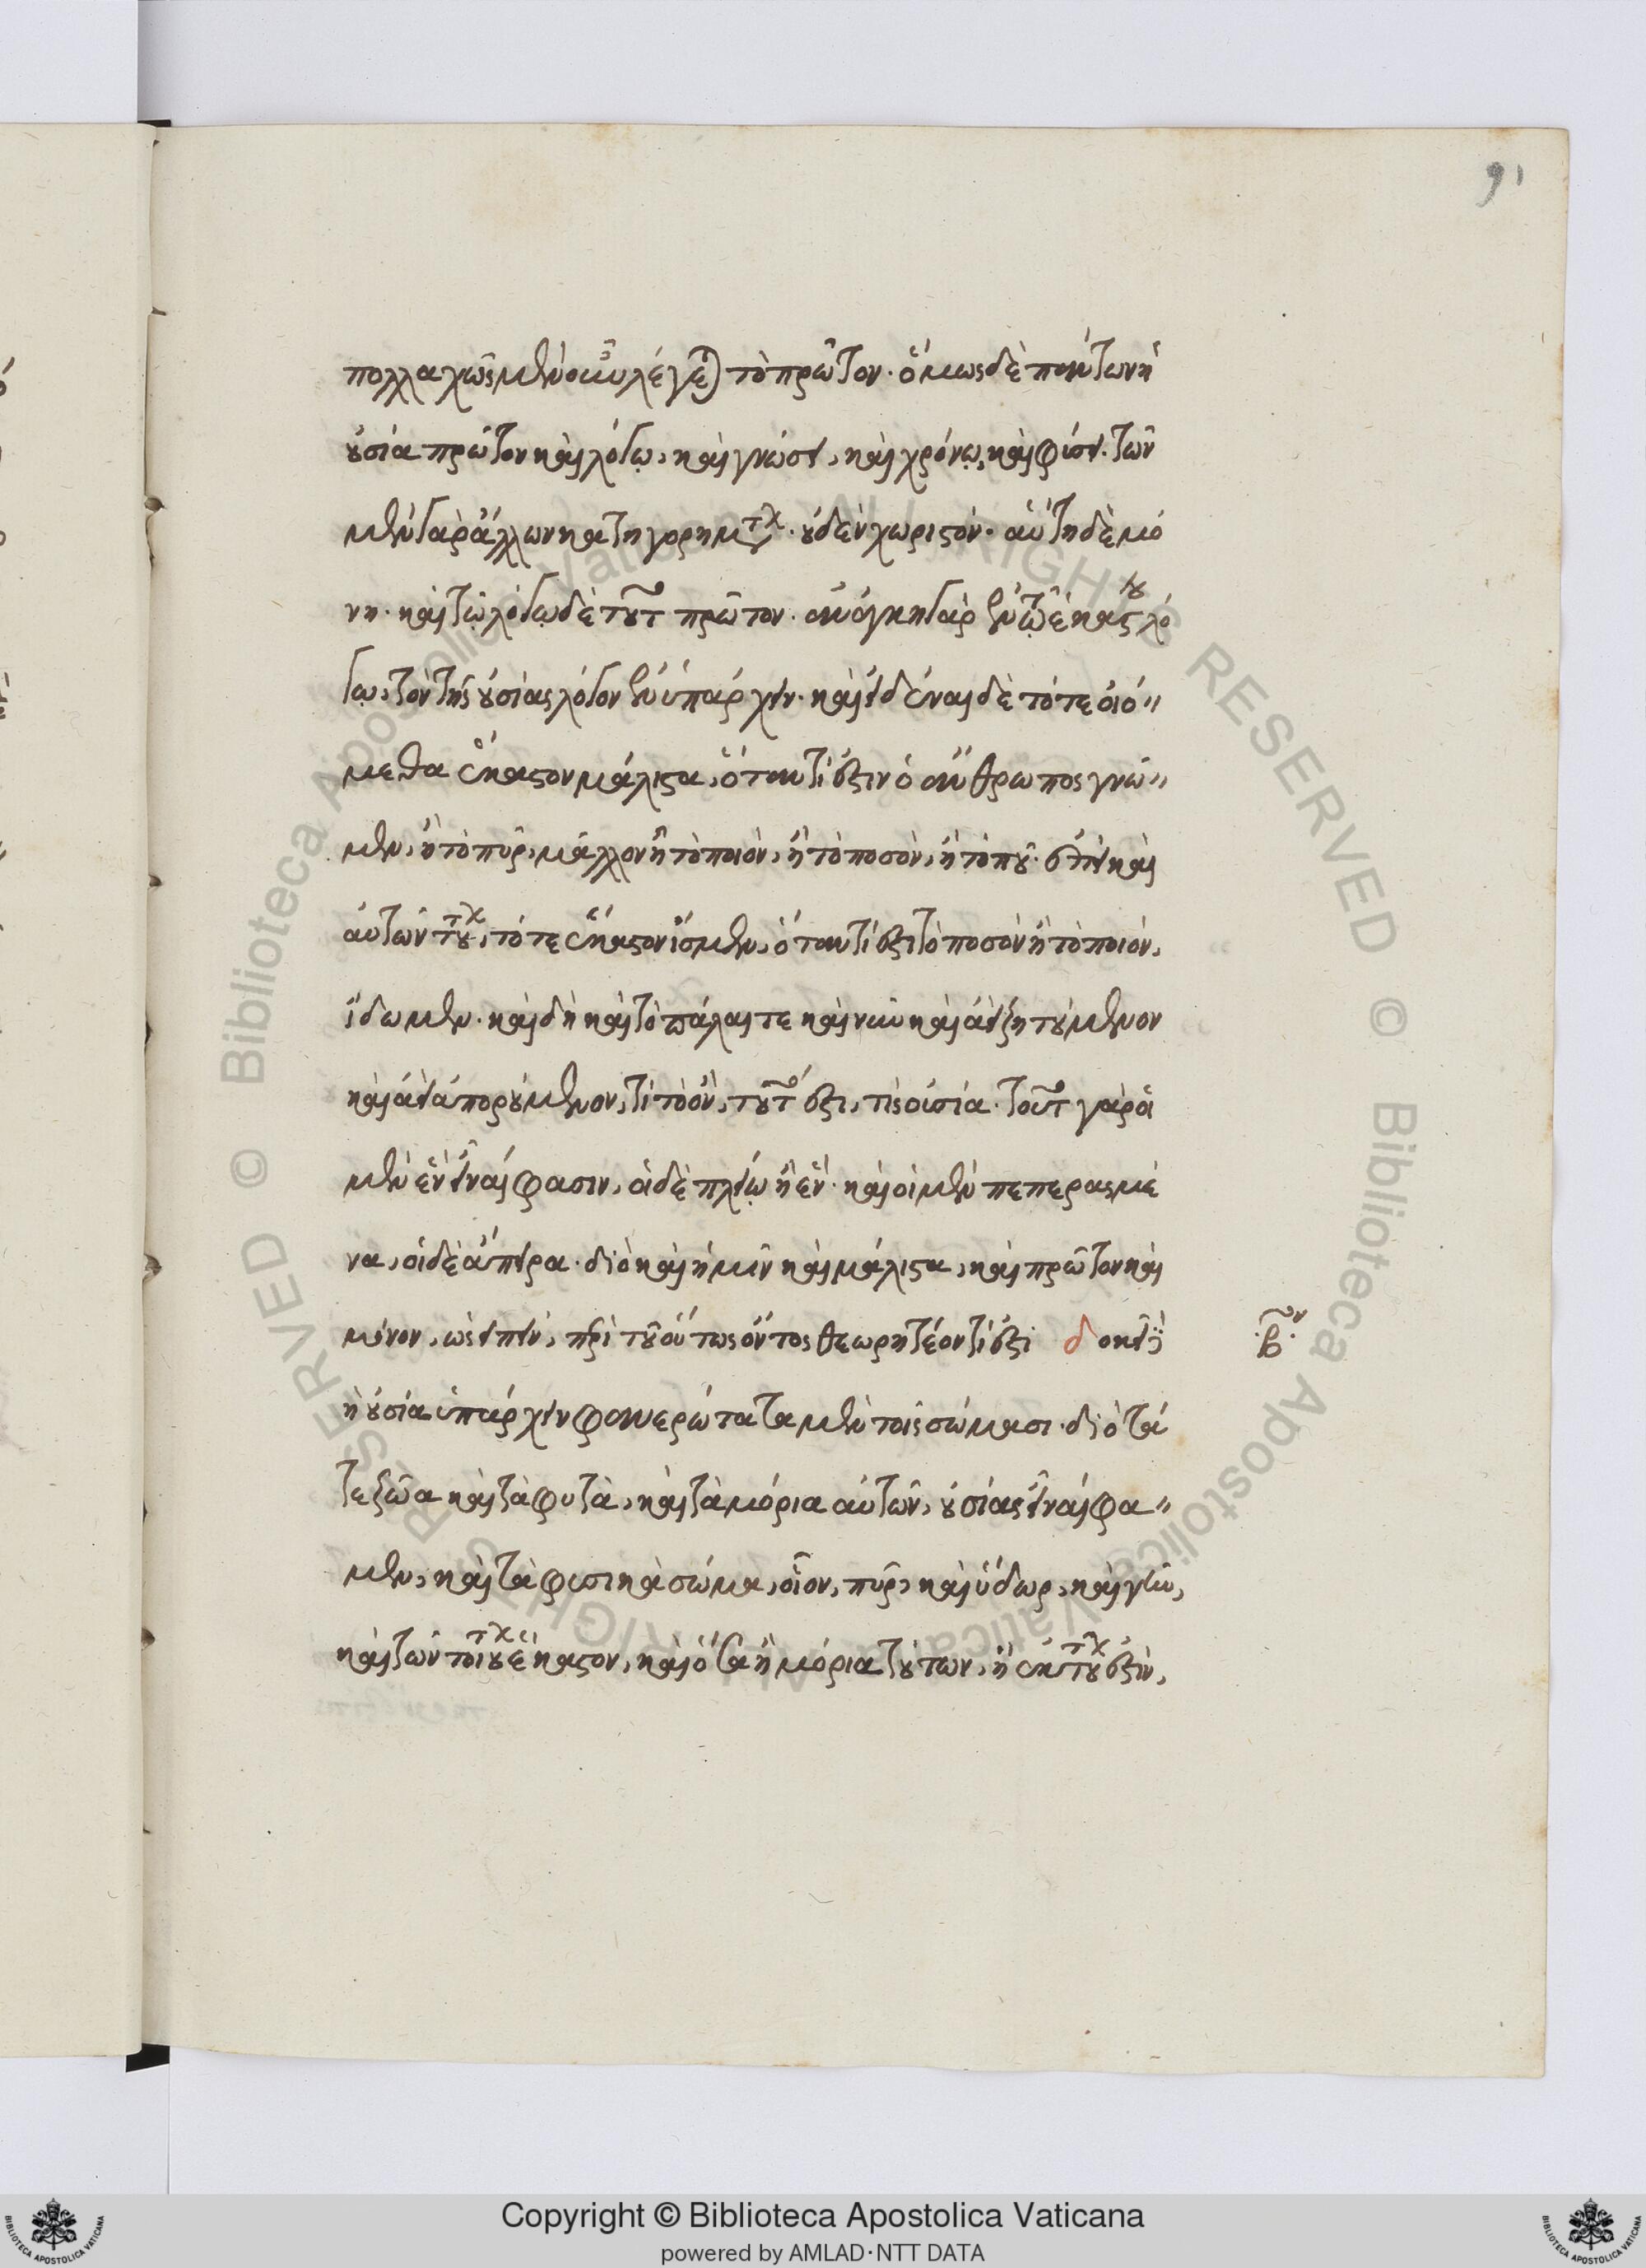 91
πολλαχῶς μὲν οὖν λέγεται τὸ πρῶτον· ὅμως δὲ πάντων ἡ
οὐσία πρῶτον καὶ λόγῳ, καὶ γνώσει, καὶ χρόνῳ, καὶ φύσει. τῶν
μὲν γὰρ ἄλλων κατηγορημάτων· οὐδὲν χωριστὸν· αὕτη δὲ μό
νη· καὶ τῷ λόγῳ δὲ τοῦτο πρῶτον. ἀνάγκη γὰρ ἐν τῷ ἑκάστου λό
γῳ, τὸν τῆς οὐσίας λόγον ἐνυπάρχειν. καὶ εἰδέναι δὲ τότε οἰό〃
μεθα ἕκαστον μάλιστα, ὅταν τί ἐστιν ὁ ἄνθρωπος γνῶ〃
μεν, ἢ τὸ πῦρ, μᾶλλον ἢ τὸ ποιὸν, ἢ τὸ ποσὸν, ἢ τὸ ποῦ· ἐπεὶ καὶ
αὐτῶν τούτων, τότε ἕκαστον ἴσμεν, ὅταν τί ἐστι τὸ ποσὸν ἢ τὸ ποιὸν,
ἴδωμεν. καὶ δὴ καὶ τὸ πάλαι τε καὶ νῦν καὶ ἀεὶ ζητούμενον
καὶ ἀεὶ ἀπορούμενον, τί τὸ ὂν, τοῦτό ἐστι, τίς οὐσία. τοῦτο γὰρ οἱ
μὲν ἓν εἶναί φασιν, οἱ δὲ πλείω ἢ ἕν. καὶ οἱ μὲν πεπερασμέ
να, οἱ δὲ ἄπειρα. διὸ καὶ ἡμῖν καὶ μάλιστα, καὶ πρῶτον καὶ
μόνον, ὡς εἰπεῖν, περὶ τοῦ οὕτως ὄντος θεωρητέον τί ἐστι δοκεῖ δὲ
.β.ον
ἡ οὐσία ὑπάρχειν φανερώτατα μὲν τοῖς σώμασι. διὸ τά
τε ζῶα καὶ τὰ φυτὰ, καὶ τὰ μόρια αὐτῶν, οὐσίας εἶναί φα〃
μεν, καὶ τὰ φυσικὰ σώμα, οἷον, πῦρ, καὶ ὕδωρ, καὶ γῆν,
καὶ τῶν τοιούτων ἕκαστον, καὶ ὅσα ἢ μόρια τούτων, ἢ ἐκ τούτων ἐστὶν,
Copyright © Biblioteca Apostolica Vaticana
powered by AMLAD·NTT DATA